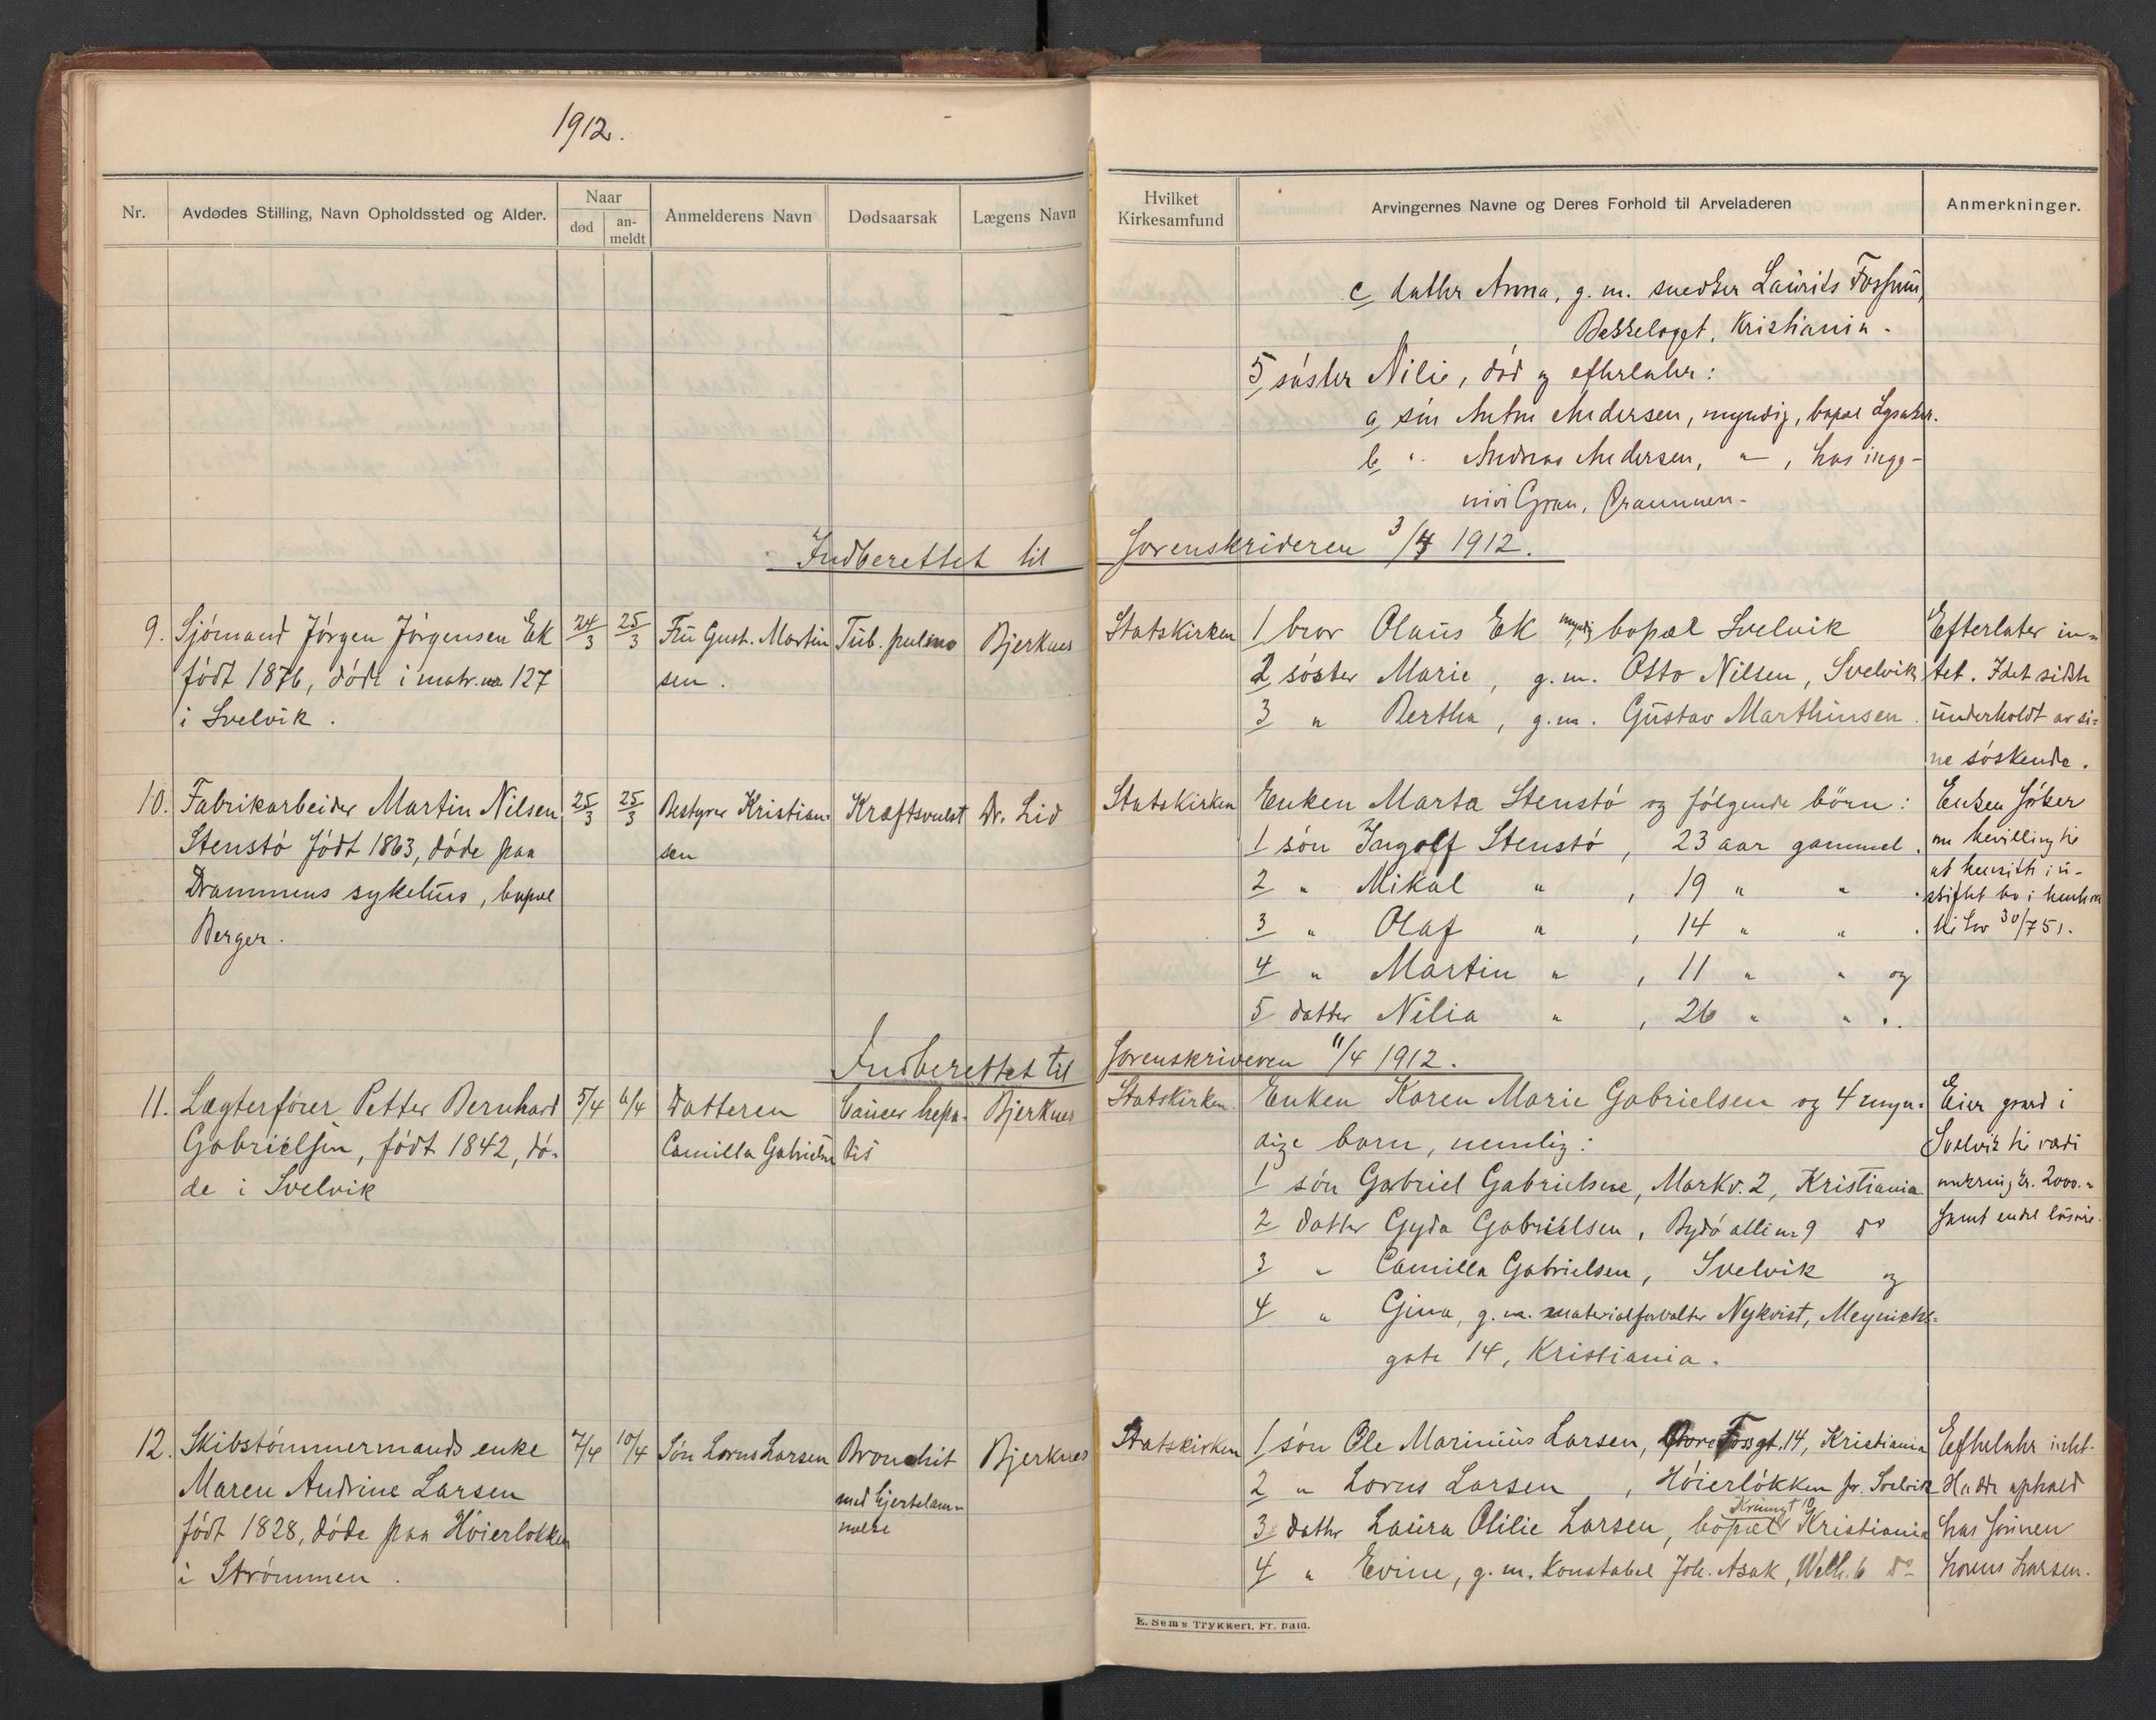 1912.
Nr.
Avdødes Stilling, Navn Opholdssted og Alder.
Naar
død
an-
meldt
Anmelderens Navn
Dødsaarsak
Lægens Navn
Hvilket
Kirkesamfund
Arvingernes Navne og Deres Forhold til Arveladeren
Anmerkninger.
c datter Anna, g. m. snedker Laurits Fossum,
Bækkelaget, Kristiania.
5 søster Nilie, död og efterlater:
a, søn Anton Andersen, myndig, bopæl Lysaker.
b, " Andreas Andersen, " , hos inge-
niør Gran, Drammen.
Indberettet til Sorenskriveren 3/4 1912.
9. Sjömand Jörgen Jörgensen Ek
födt 1876, döde i matr. no 127
i Svelvik.
24/3
25/3
Fru Gust. Martin
sen.
Tub. pulmo
Bjerknes
Statskirken
1 bror Olaus Ek myndig bopæl Svelvik
2 söster Marie, g. m. Otto Nilsen, Svelvik
3 " Bertha, g. m. Gustav Marthinsen.
Efterlater in-
tet. I det sidste
underholdt av si-
ne söskende.
10. Fabrikarbeider Martin Nilsen
Stenstö födt 1863, döde paa
Drammens sykehus, bopæl
Berger.
25/3
25/3
Bestyrer Kristian-
sen
Kræftsvulst
Dr. Lid
Statskirken
Enken Marta Stenstö og fölgende börn:
1 sön Ingolf Stenstö, 23 aar gammel.
2 " Mikal " , 19 " " .
3 " Olaf " , 14 " " .
4 " Martin " , 11 " " og
5 datter Nilia " , 26 " " .
Enken söker
om bevilling til
at hensitte i u-
skiftet bo i henhold
til lov 30/7 51.
Indberettet til Sorenskriveren 11/4 1912.
11. Lægterförer Petter Bernhard
Gabrielsen, födt 1842, dö-
de i Svelvik
5/4
6/4
Datteren
Camilla Gabrielsen
Cancer hepa-
tis
Bjerknes
Statskirken.
Enken Karen Marie Gabrielsen og 4 myn-
dige barn, nemlig:
1 sön Gabriel Gabrielsen, Markv. 2, Kristiania.
2 datter Gyda Gabrielsen, Bygdö alle nr 9 do
3 " Camilla Gabrielsen, Svelvik og
4 " Gina, g. m. materialforvalter Nykvist, Meynichs-
gate 14, Kristiania.
Eier gaard i
Svelvik til værdi
omkring kr. 2000.-
samt endel lösöre.
12. Skibstömmermands enke
Maren Andrine Larsen
födt 1828, döde paa Höierlökken
i Strömmen.
7/4
10/4
Sön Lorns Larsen
Bronchit
med hjertelam-
melse
Bjerknes
Statskirken
1 sön Ole Marinius Larsen, Fossgt. 14, Kristiania
2 " Lorns Larsen, Höierlökken pr. Svelvik
3 datter Laura Otilie Larsen, bopæl Krumgt 10 Kristiania
4 " Evine, g. m. Konstabel Joh. Asak, Welh. 6 do
Efterlater intet.
Hadde ophold
hos sönnen
Lorens Larsen.
E. Sem's Trykkeri, Fr. hald.